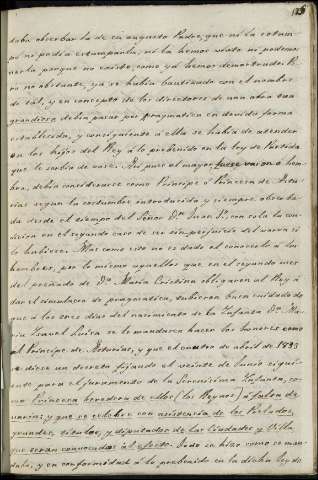 125
debia observar la de su augusto Padre, que ni la estam-
nó ni podia estamparla, ni la hemos visto ni podemos
verla porque no existe como ya hemos demostrado. Pe-
ro no obstante, ya se habia bautizado con el nombre
de tal, y en concepto de los directores de una obra tan
grandiosa debia pasar por pragmatica en devida forma
establecida, y consiguiente á ella se habia de atender
en los hijos del Rey á lo prebenido en la ley de Partida
que se acaba de ver. Así pues el mayor, fuese varon ó hem-
bra, debia considerarse como Principe ó Princesa de Astu-
rias segun la costumbre introducida y siempre observa-
da desde el tiempo del Señor Dn. Juan 1º, con sola la con-
dicion en el segundo caso de ser sin perjuicio del varon si
lo hubiese. Mas como esto no es dado el conocerlo á los
hombres, por lo mismo aquellos que en el segundo mes
del preñado de Da. Maria Cristina obligaron al Rey á
dar el simulacro de pragmatica, tubieron buen cuidado de
que á los tres dias del nacimiento de la Infanta Da. Ma-
ria Isavel Luisa se le mandasen hacer los honores como
al Principe de Asturias, y que el cuatro de abril de 1833
se diese un decreto fijando el veinte de Junio siguie-
nte para el juramento de la Serenisima Infanta, co-
mo Princesa heredera de ellos (los Reynos) á falta de
varon; y que se celebre con asistencia de los Prelados,
grandes, titulos, y diputados de las Ciudades y Villas
que serán convocados al efecto. Todo se hizo como se man-
daba, y en conformidad á lo prebenido en la dicha ley de